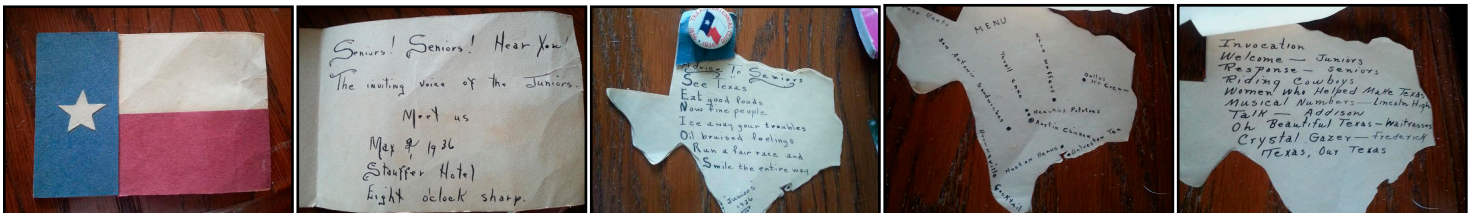 Seniors! Seniors! Hear You!
The inviting voice of the Juniors.
Meet us
May 8, 1936
Stouffer Hotel
Eight o'clock sharp.
Advice To Seniors
See Texas
Eat good foods
Now fine people
Ice away your troubles
Oil bruised feelings
Run a fair race and
Smile the entire way
Juniors
1936
MENU
San Antonio Sandwiches
Waco Waffers
Dallas
Ice Cream
Potatoes
Austin
Houston Hams
Galveston
Brownsville Cocktail
Invocation
Welcome — Juniors
Response — Seniors
Riding Cowboys
Women Who Helped Make Texas
Musical Numbers — Lincoln High
Talk — Addison
Oh Beautiful Texas — Waitresses
Crystal Gazer — Frederick
Texas, Our Texas